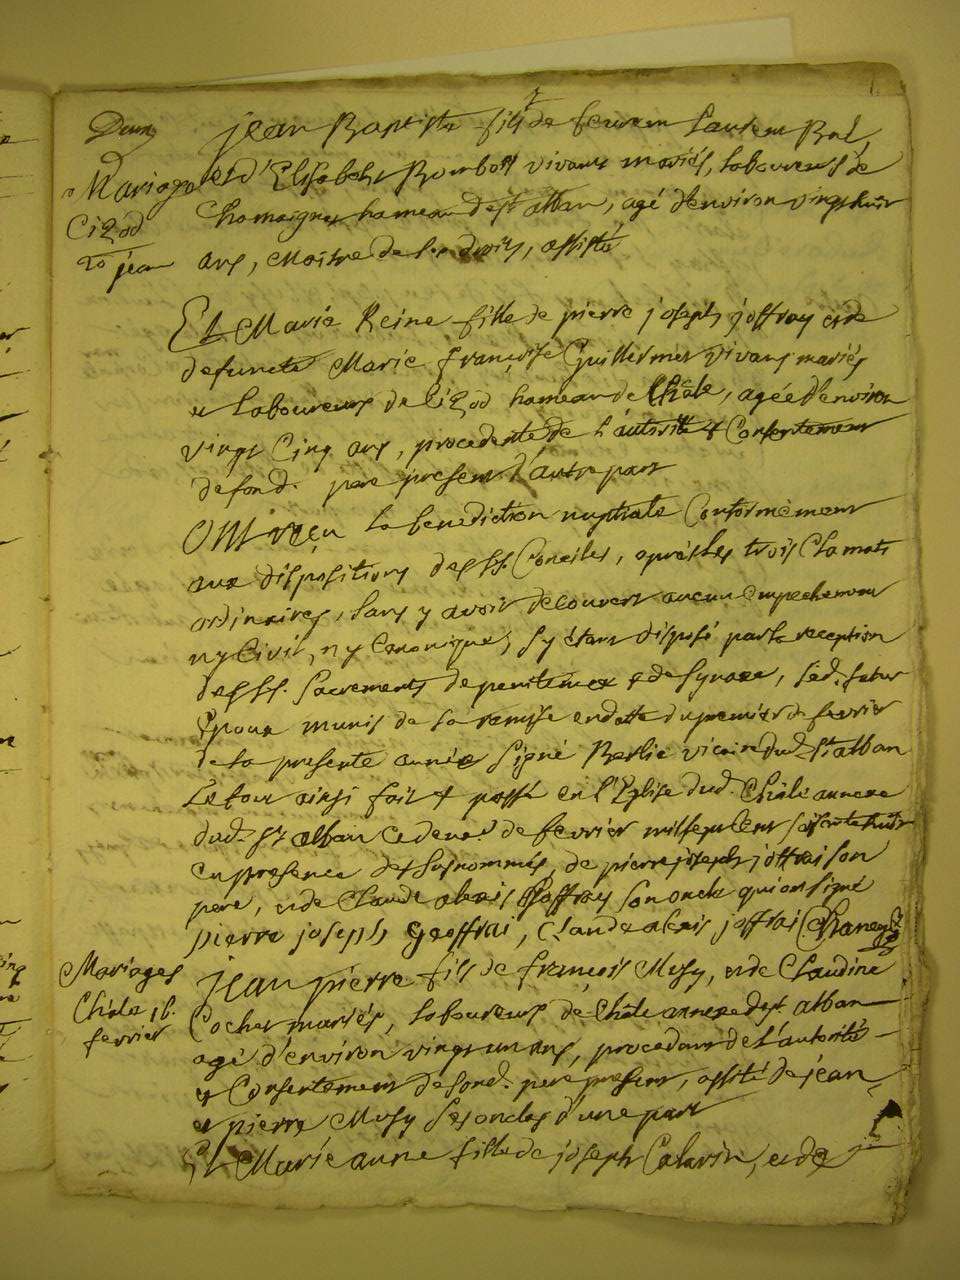 Deux
Mariage
Cizod
20 jean
jean Baptiste fils de feu Laurent
et d'Elisabeth vivans mariés, laboureurs de
hameau de st alban, agé d'environ vingt huit
ans, Maitre de ses droits, assisté
Et Marie Reine fille de pierre joseph joffray et de
defuncte Marie françoise Guillermet vivans mariés
et laboureurs de Cizod hameau de Châle, agée d'environ
vingt Cinq ans, procedente de l'autorité & Consentement
de sond. pere present d'autre part
Ont reçu la benediction nuptiale Conformement
aux dispositions des SS. Conciles, après les trois Clamats
ordinaires, sans y avoir decouvert aucun empechement
ny Civil, ny Canonique, s'y étant disposé par la reception
des SS. Sacrements de penitence & de Synaxe, led. futur
Epoux munis de sa remise en datte du premier de fevrier
de la presente année Signé Berlie vicaire dud. St alban
Le tout ainsi fait & passé en l'Eglise dud. Châle annexe
dud. St alban ce de fevrier mil sept Cent soixante huit
en presence des susnommés, de pierre joseph joffrai son
pere, et de Claude alexis joffray son oncle qui ont signé
pierre joseph Geoffrai, Claude alexis joffrai
Mariages
Châle 16.
fevrier
jean pierre fils de françois Musy, et de Claudine
Cochet mariés, laboureurs de Châle annexe de st. alban
agé d'environ vingt un ans, procedant de l'autorité
et Consentement de sond. pere present, assisté de jean
et pierre Musy ses oncles d'une part
Et Marie anne fille de joseph et de